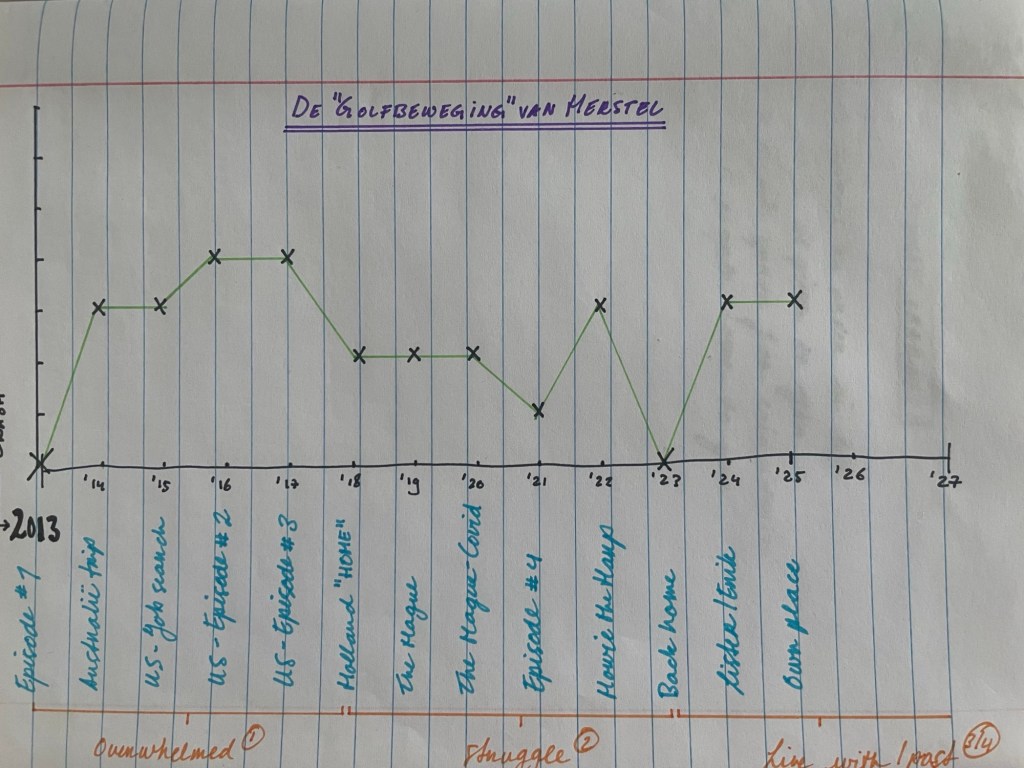 DE "GOLFBEWEGING" VAN HERSTEL
'14 '15 '16 '17 '18 '19 '20 '21 '22 '23 '24 '25 '26 '27
→2013
Episode #1
Australië trip
US - Job search
US - Episode #2
US - Episode #3
Holland "HOME"
The Hague
The Hague - Covid
Episode #4
Howie the Harp
Back home
Own place
Overwhelmed ①
struggle ②
Live with / past 3/4